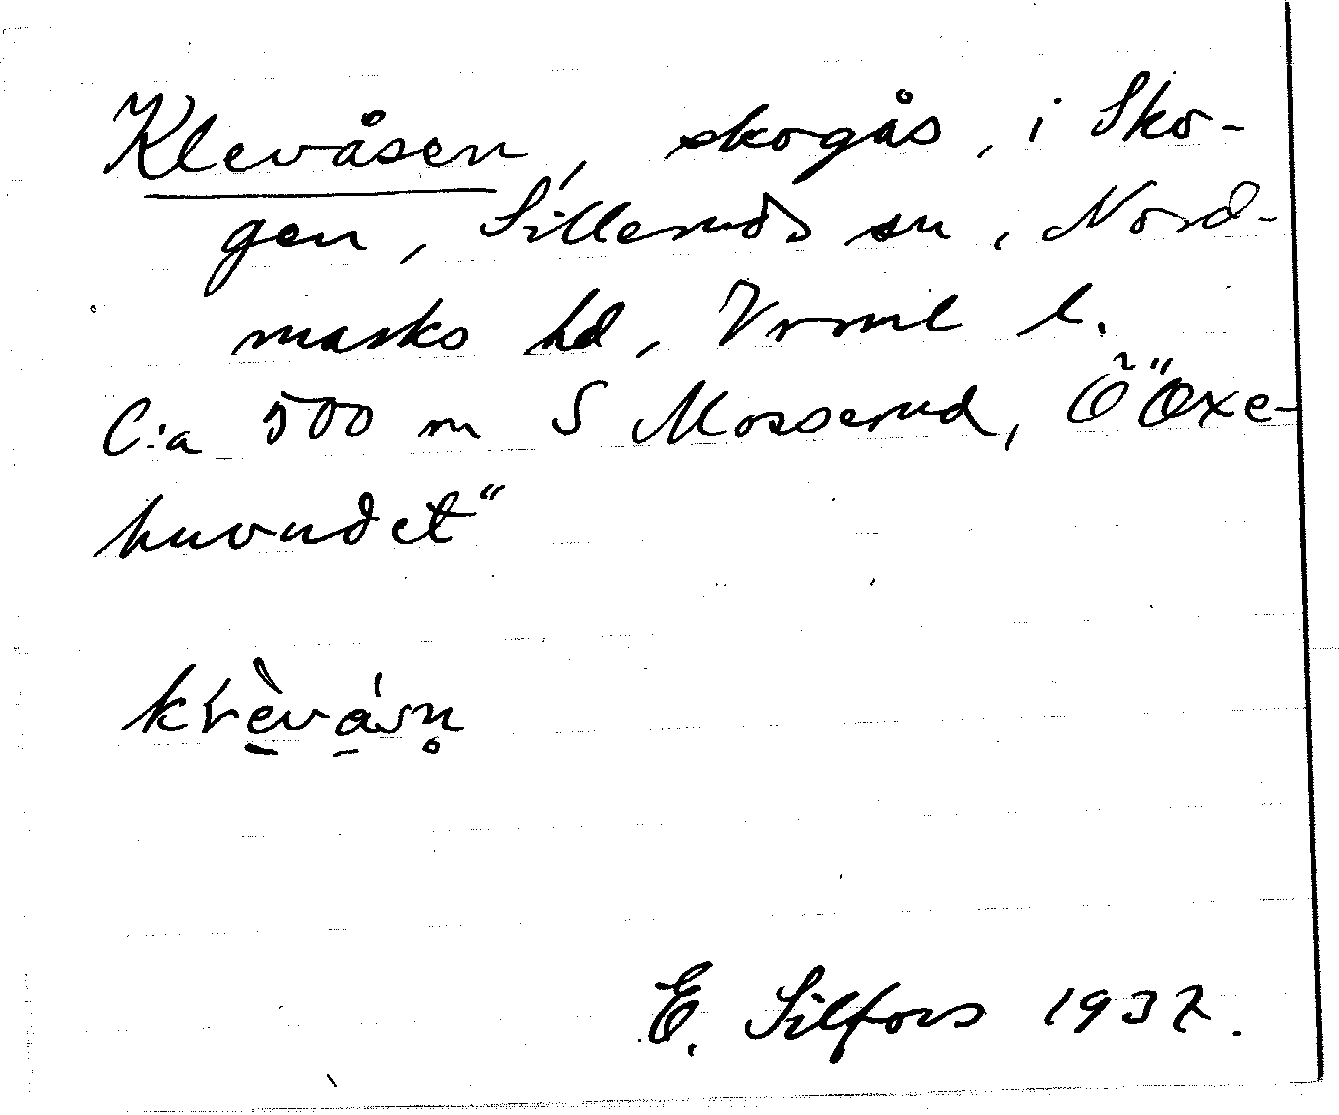 Klevåsen, skogås, i Sko-
gen, Silleruds sn, Nord-
marks hd, Vrml l.
C:a 500 m S Mosserud, Ö "Oxe-
huvudet"
krèvásn̥
E. Silfors 1937.